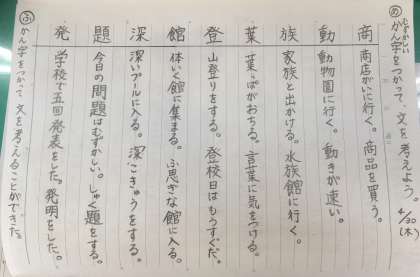 め むずかしいかん字をつかって、文を考えよう。 4/30(木)
商 商店がいに行く。商品を買う。
動 動物園に行く。動きが速い。
族 家族と出かける。水族館に行く。
葉 葉っぱがおちる。言葉に気をつける。
登 山登りをする。登校日はもうすぐだ。
館 体いく館に集まる。ふ思ぎな館に入る。
深 深いプールに入る。深こきゅうをする。
題 今日の問題はむずかしい。しゅく題をする。
発 学校で五回発表をした。発明をした。
ふ かん字をつかって、文を考えることができた。